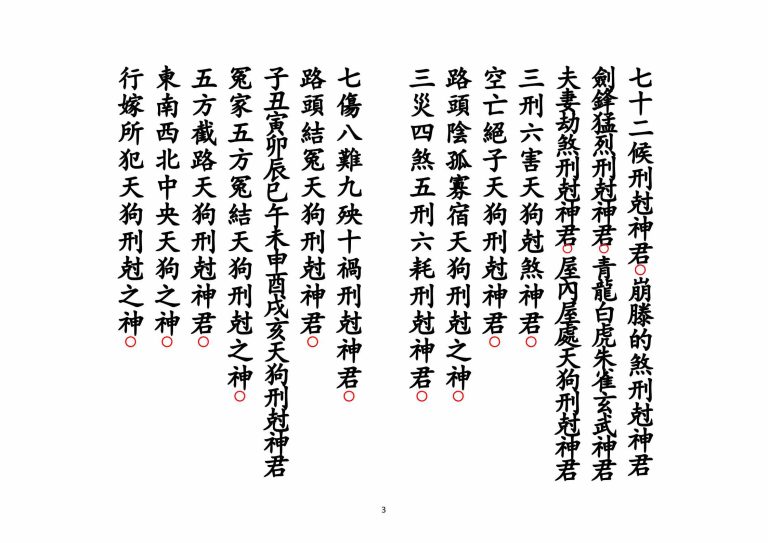 七十二候刑尅神君○崩滕的煞刑尅神君
劍鋒猛烈刑尅神君○青龍白虎朱雀玄武神君
夫妻劫煞刑尅神君○屋內屋處天狗刑尅神君
三刑六害天狗尅煞神君○
空亡絕子天狗刑尅神君○
路頭陰孤寡宿天狗刑尅之神○
三災四煞五刑六耗刑尅神君○
七傷八難九殃十禍刑尅神君○
路頭結冤天狗刑尅神君○
子丑寅卯辰巳午未申酉戌亥天狗刑尅神君
冤家五方冤結天狗刑尅之神○
五方截路天狗刑尅神君○
東南西北中央天狗之神○
行嫁所犯天狗刑尅之神○
3